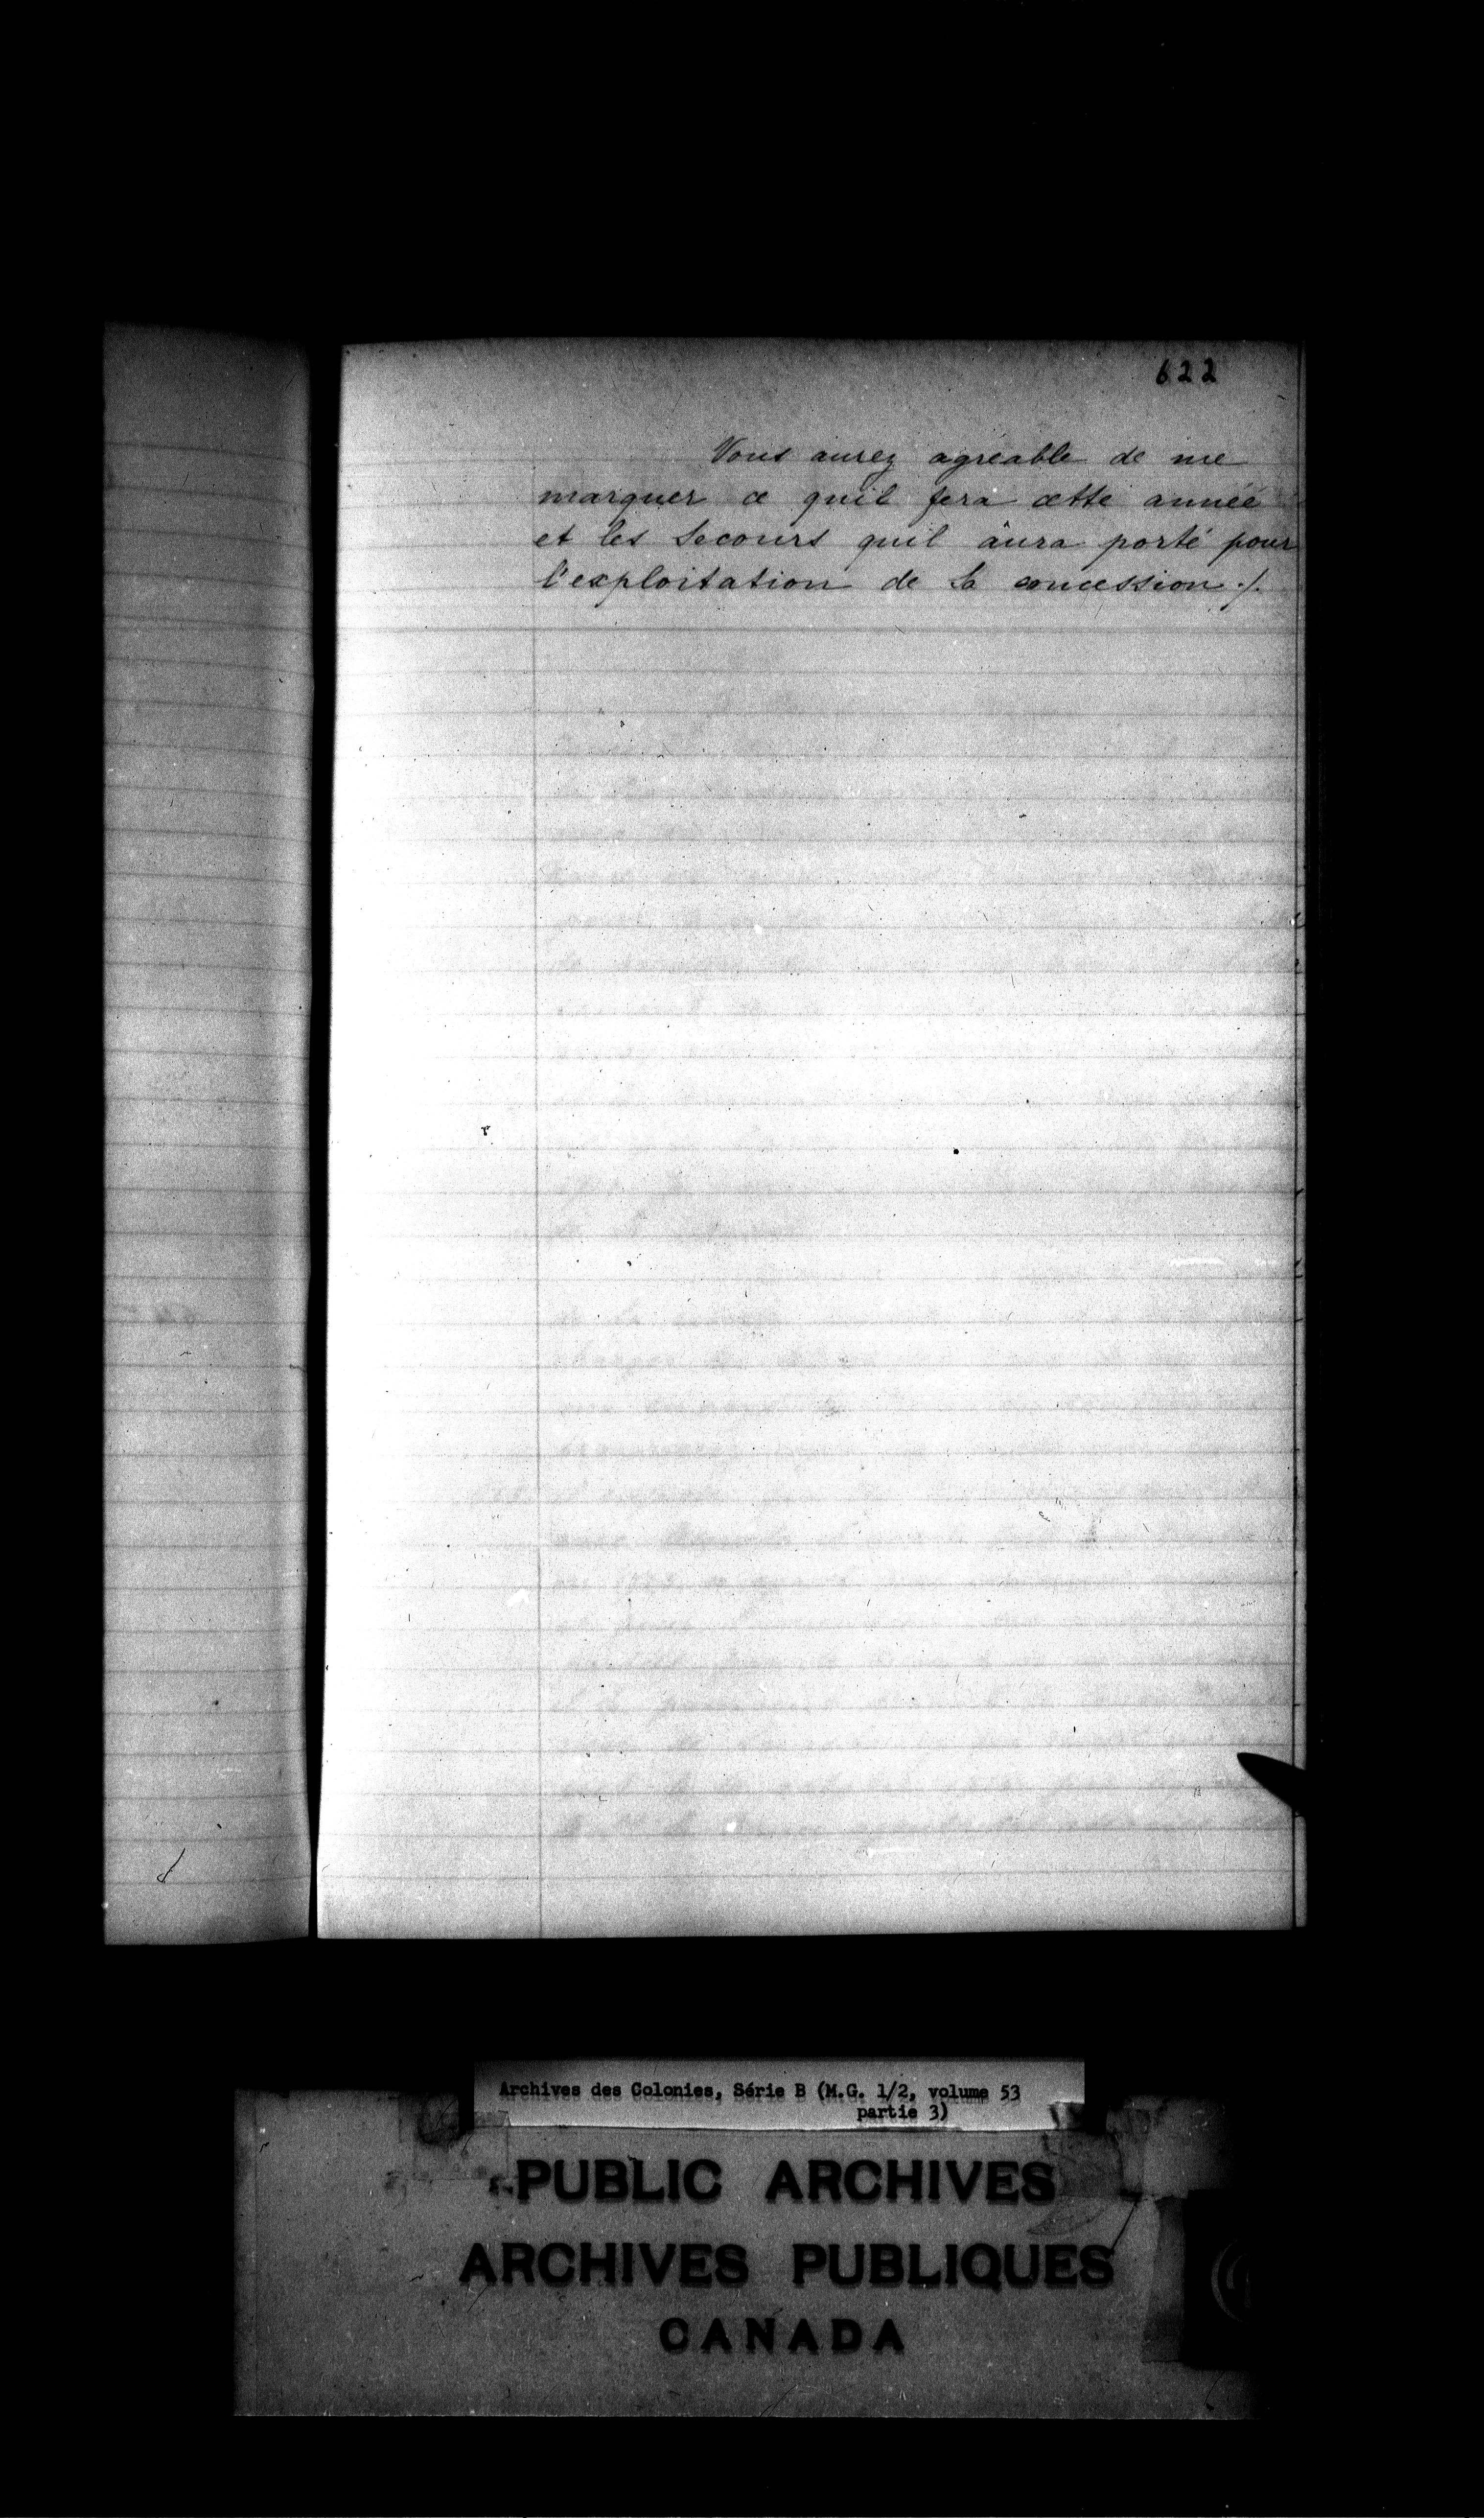 622
Vous aurez agréable de me
marquer ce quil fera cette année
et les Secours quil aura porté pour
l'exploitation de Sa concession ./.
Archives des Colonies, Série B (M.G. 1/2, volume 53
partie 3)
PUBLIC ARCHIVES
ARCHIVES PUBLIQUES
CANADA